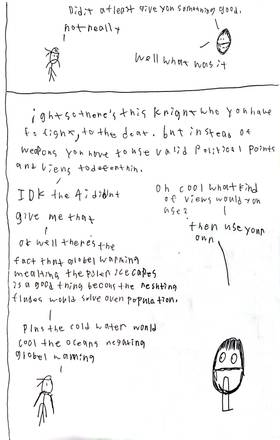 Did it atleast give you something good.
not really
Well what was it
ight so there's this knight who you have
to fight, to the deat. but instead of
weapons you have to use valid political points
and views to defeat him.
Oh cool what kind
of views would you
use?
IDK the Ai didnt
give me that
then use your
own
ok well there's the
fact that global warming
mealting the poler ice capes
is a good thing becous the resulting
fludes would solve over population.
Plus the cold water would
cool the oceans negating
global waming